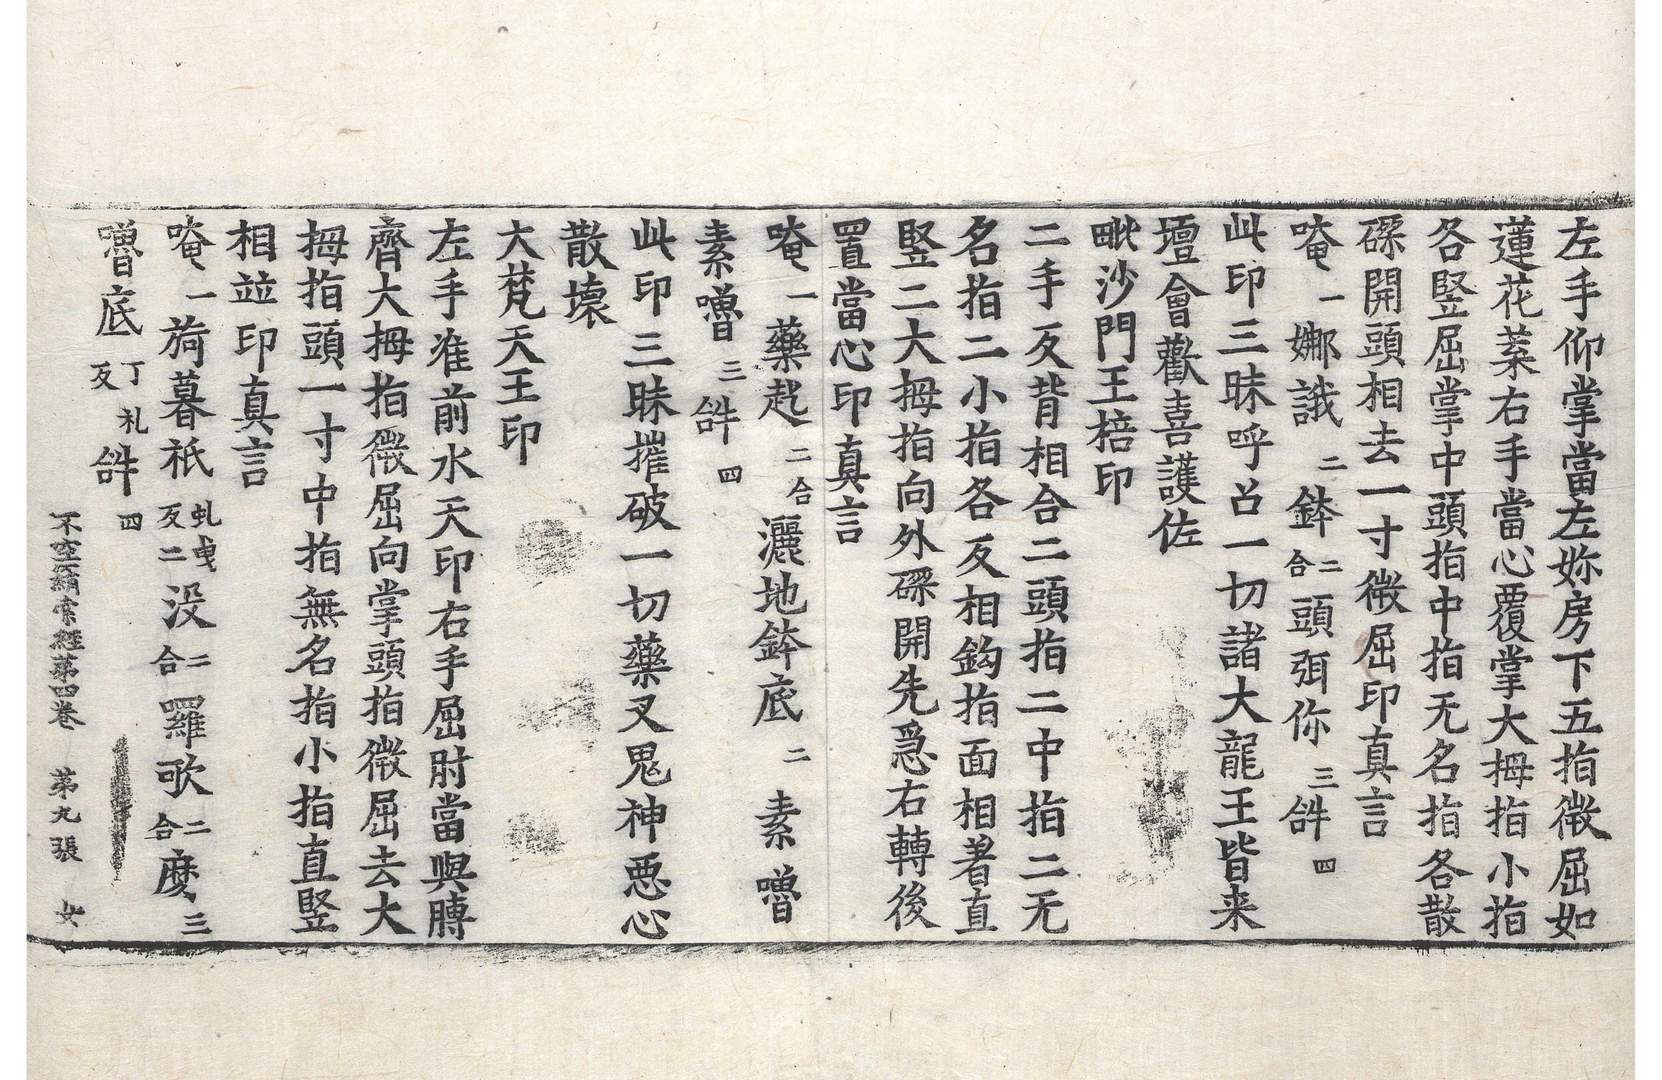 左手仰掌當左妳房下五指微屈如
蓮花葉右手當心覆掌大拇指小指
各竪屈掌中頭指中指无名指各散
磔開頭相去一寸微屈印真言
唵一娜誐二鉢二合頭弭你三𤙖四
此印三昧呼召一切諸大龍王皆来
壇會歡喜護佐
毗沙門王棓印
二手反背相合二頭指二中指二无
名指二小指各反相鈎指面相著直
竪二大拇指向外磔開先急右轉後
置當心印真言
唵一藥起二合灑地鉢底二素嚕
素嚕三𤙖四
此印三昧摧破一切藥叉鬼神悪心
散壊
大梵天王印
左手准前水天印右手屈肘當與膊
齊大拇指微屈向掌頭指微屈去大
拇指頭一寸中指無名指小指直竪
相並印真言
唵一荷暮祇虬曳反二没二合羅歌二合麼三
嚕底丁礼反𤙖四
不空羂索経第四卷 第九張 女